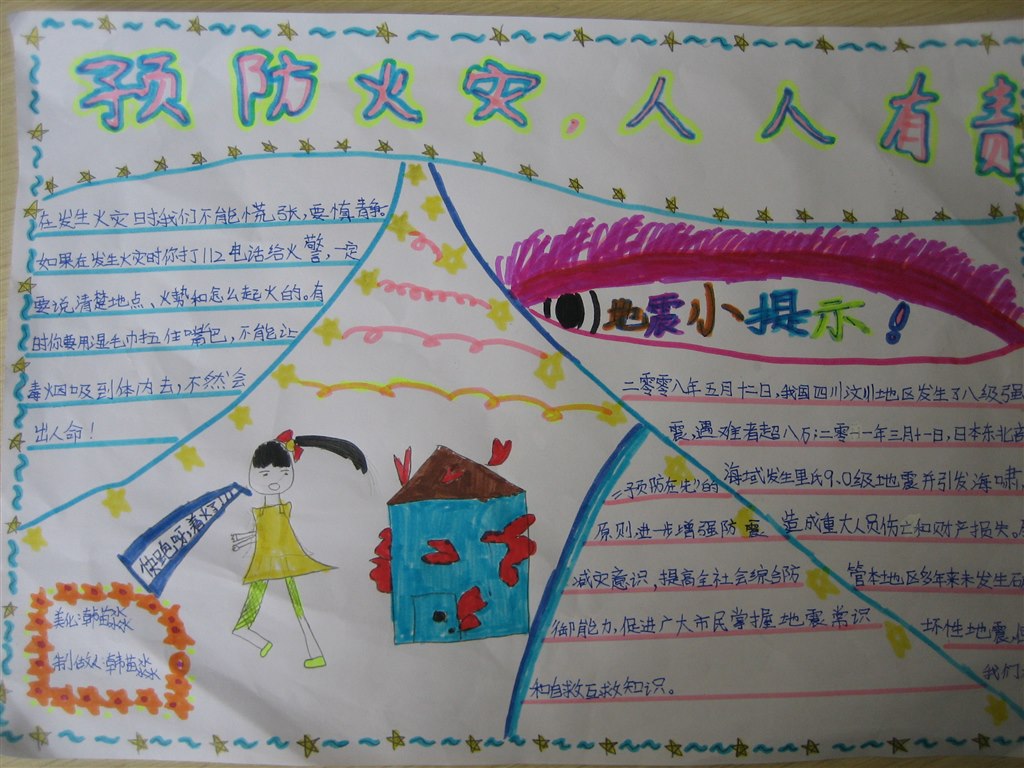 预防火灾,人人有责
在发生火灾时我们不能慌张,要慎静。
如果在发生火灾时你打112电话给火警,一定
要说清楚地点、火势和怎么起火的。有
时你要用湿毛巾捂住嘴巴,不能让
毒烟吸到体内去,不然会
出人命!
快跑呀,着火了
美化:韩苗淼
制做人:韩苗淼
地震小提示!
二零零八年五月十二日,我国四川汶川地区发生了八级强
震,遇难者超八万;二零一一年三月十一日,日本东北
海域发生里氏9.0级地震并引发海啸,
造成重大人员伤亡和财产损失。
管本地区多年来未发生
坏性地震,
我们
预防在先的
原则进一步增强防震
减灾意识,提高全社会综合防
御能力,促进广大市民掌握地震常识
和自救互救知识。